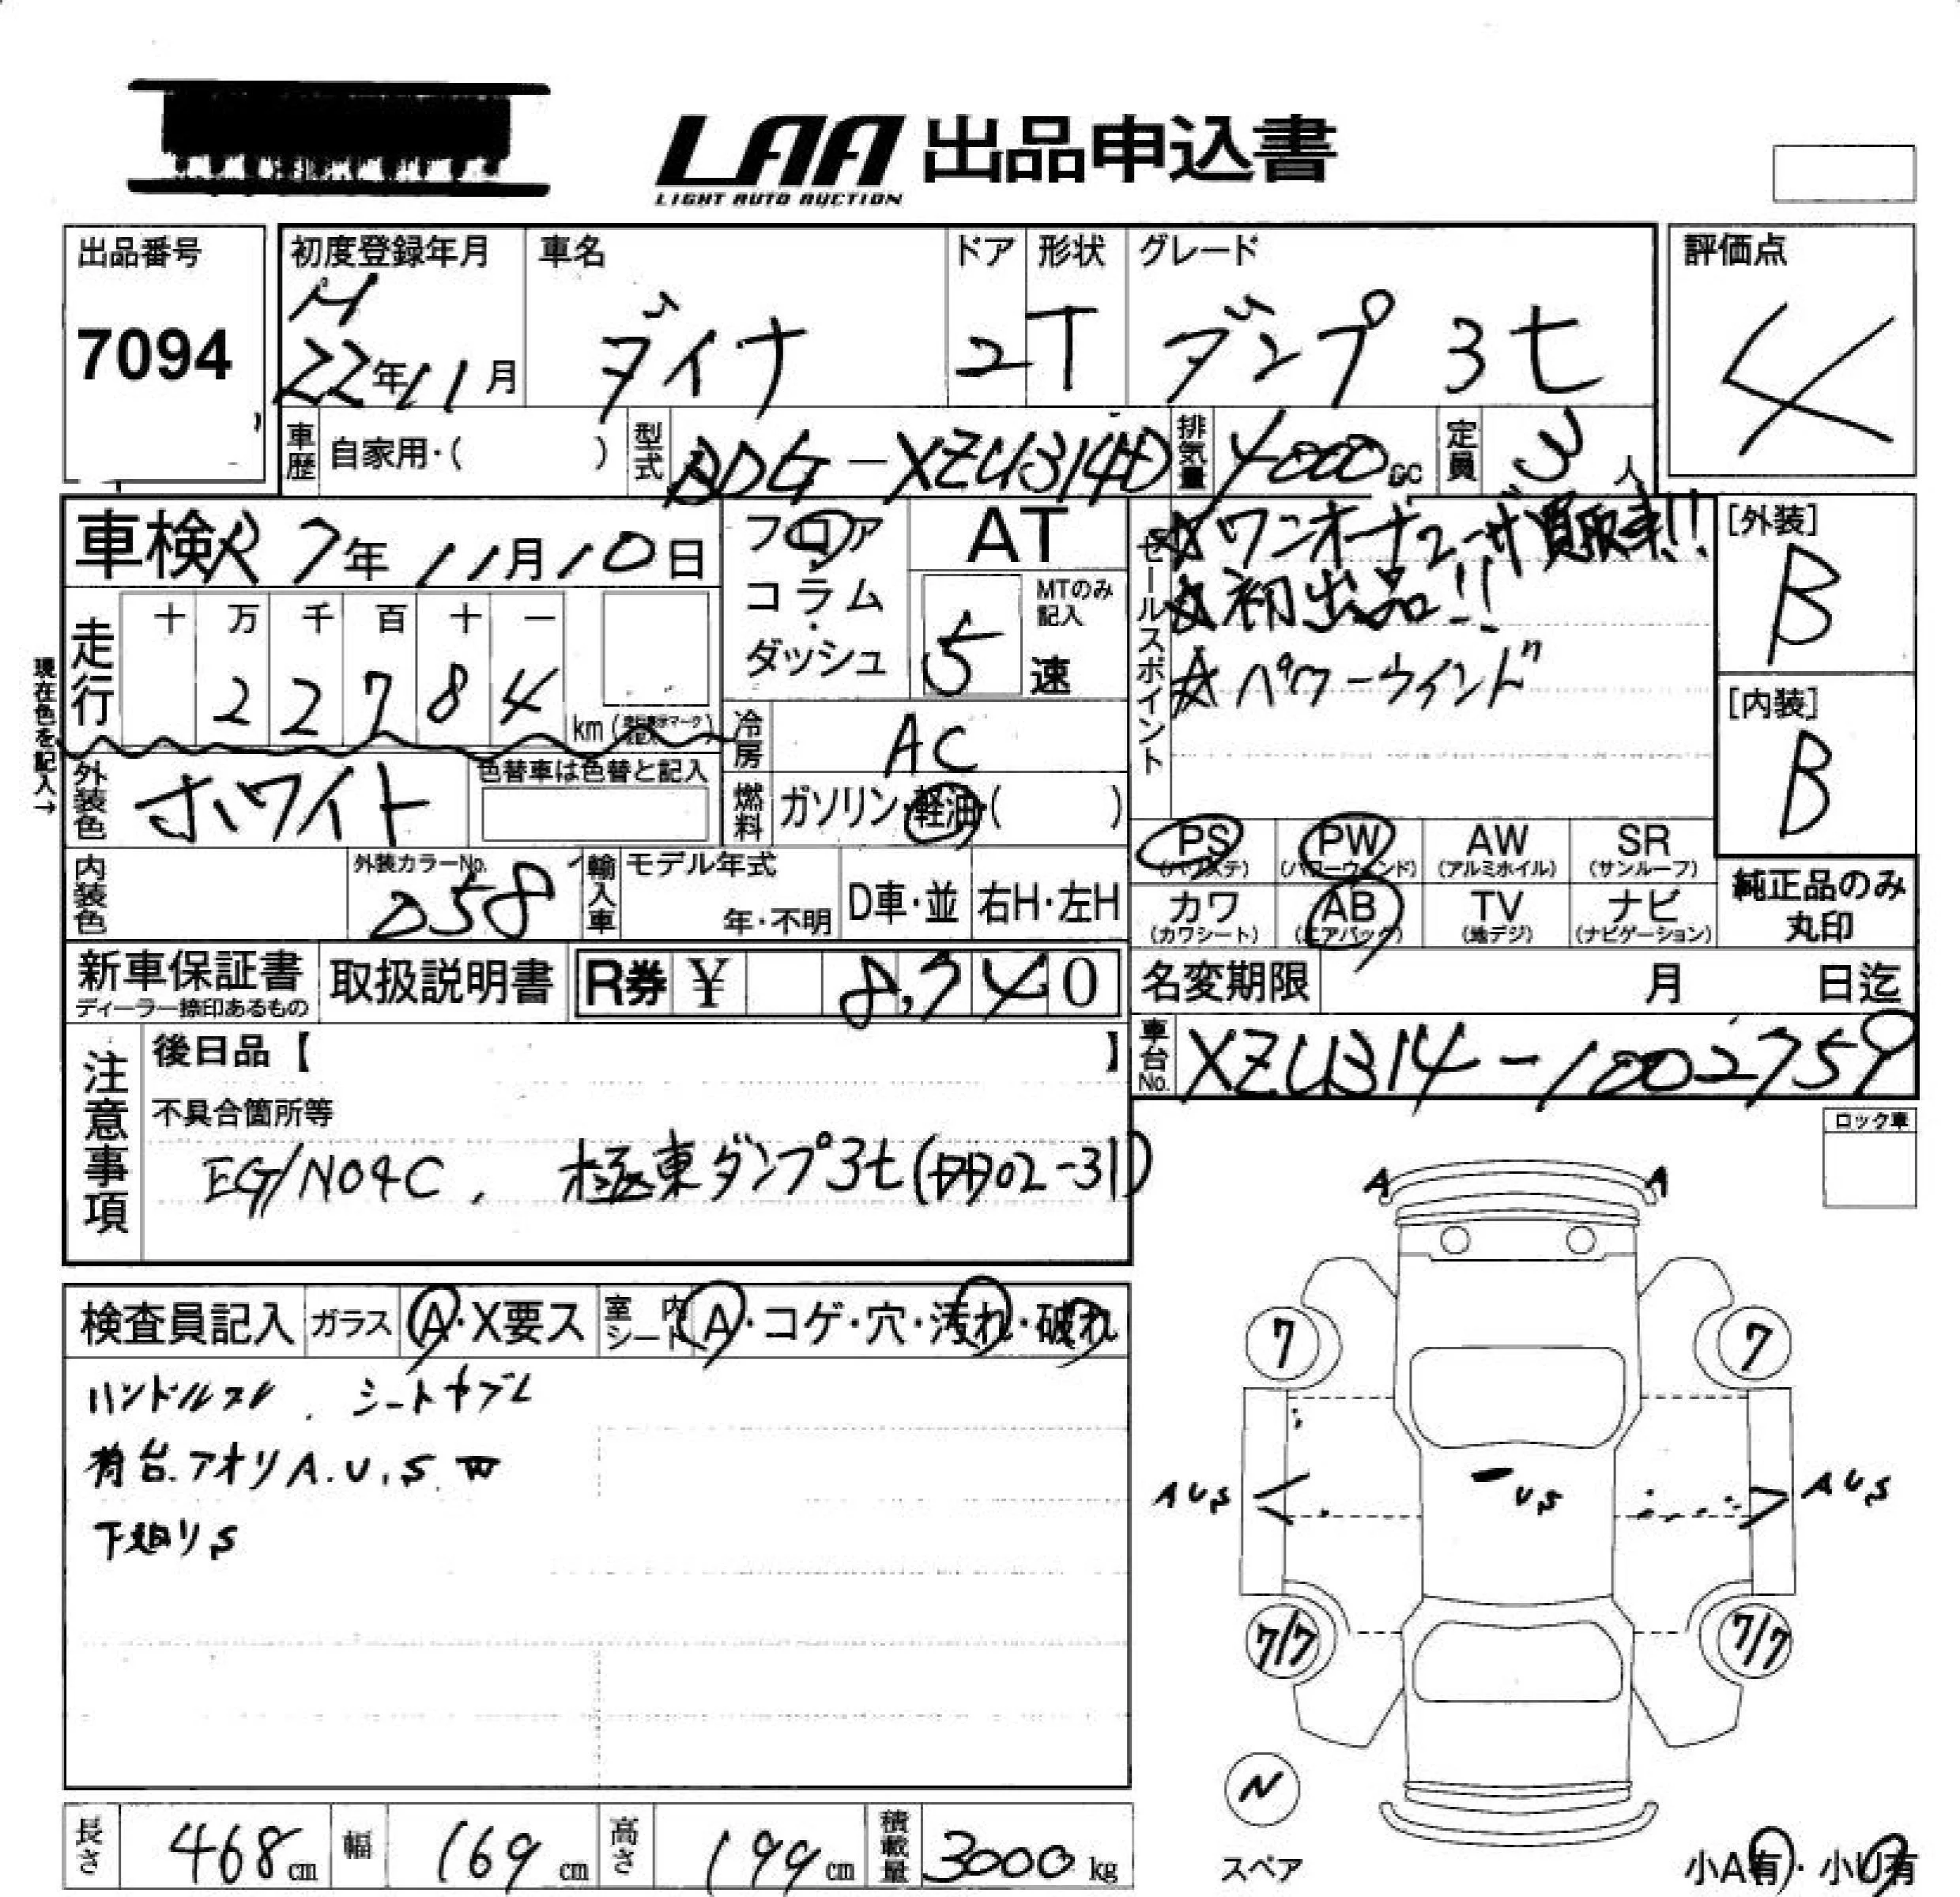 LAA 出品申込書
LIGHT AUTO AUCTION
出品番号
7094
初度登録年月
H
22年11月
車名
ダイナ
ドア
2
形状
T
グレード
ダンプ 3t
評価点
4
車歴 自家用・( )
型式 BDG-XZU314D
排気量 4000cc
定員 3人
車検 R7年11月10日
フロア
コラム
ダッシュ
AT
MTのみ記入
5速
セールスポイント
☆ワンオーナーユーザ買取車!!
☆初出品!!
☆パワーウインド
[外装]
B
[内装]
B
走行 十 万 千 百 十 一
22784 km
現在色を記入→
冷房 AC
燃料 ガソリン・軽油・( )
外装色 ホワイト
色替車は色替と記入
内装色
外装カラーNo.
058
輸入車 モデル年式
年・不明
D車・並 右H・左H
PS (パワステ)
PW (パワーウィンド)
AW (アルミホイル)
SR (サンルーフ)
カワ (カワシート)
AB (エアバック)
TV (地デジ)
ナビ (ナビゲーション)
純正品のみ
丸印
新車保証書
ディーラー捺印あるもの
取扱説明書
R券 ¥ 8,740
名変期限 月 日迄
車台No. XZU314-1002759
注意事項
後日品【 】
不具合箇所等
EG/N04C, 極東ダンプ3t(DD02-31)
ロック車
検査員記入 ガラス A・X要ス 室内シート A・コゲ・穴・汚れ・破れ
ハンドルスレ、シートヤブレ
荷台.アオリA.U.S.W
下廻りS
A A
7 7
AUS US AUS
7/7 7/7
N
スペア
小A有・小U有
長さ 468cm 幅 169cm 高さ 199cm 積載量 3000kg